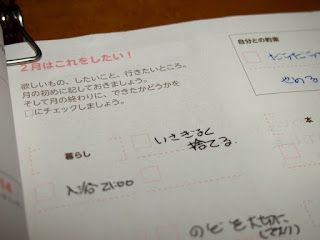 2月はこれをしたい！
欲しいもの、したいこと、行きたいところ。
月の初めに記しておきましょう。
そして月の終わりに、できたかどうかを
□にチェックしましょう。
自分との約束
やめる
暮らし
いさぎよく
捨てる
本
入浴 21:00
のどを大切に
(マスク)